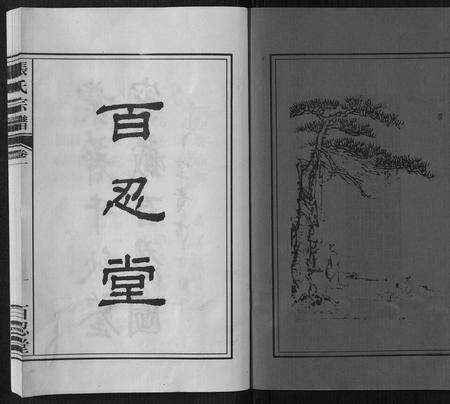 百忍堂
張氏宗譜
卷
百忍堂